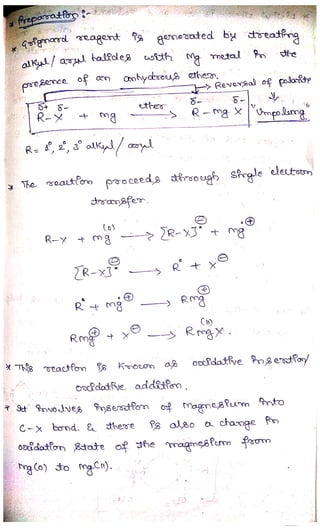 * Preparation :-
* Grignard reagent is generated by treating
alkyl / aryl halides with Mg metal in the
presence of an anhydrous ether.
→ Reversal of polarity
δ+ δ- ether δ- δ+
R-X + mg ⟶ R-mg X "Umpolung"
R = 1°, 2°, 3° alkyl / aryl
* The reaction proceeds through single electron
transfer.
R-X + mg (0) ⟶ [R-X]•⊖ + mg•⊕
[R-X]•⊖ ⟶ R• + X⊖
R• + mg•⊕ ⟶ Rmg⊕
Rmg⊕ + X⊖ ⟶ Rmg X. (II)
* This reaction is known as oxidative insertion/
oxidative addition.
* It involves insertion of magnesium into
C-X bond. & there is also a change in
oxidation state of the magnesium from
mg(0) to mg(II).